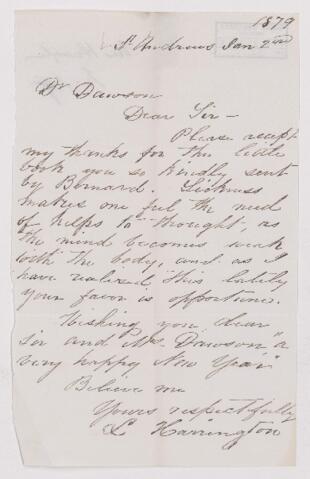 1879
St Andrews Jan 2nd
Dr Dawson
Dear Sir -
Please accept
my thanks for the little
book you so kindly sent
by Bernard. Sickness
makes one feel the need
of helps to thought, as
the mind becomes weak
with the body, and as I
have realized this lately
your favor is opportune.
Wishing you dear
Sir and Mrs. Dawson "a
very happy New Year"
Believe me
Yours respectfully
L Harrington